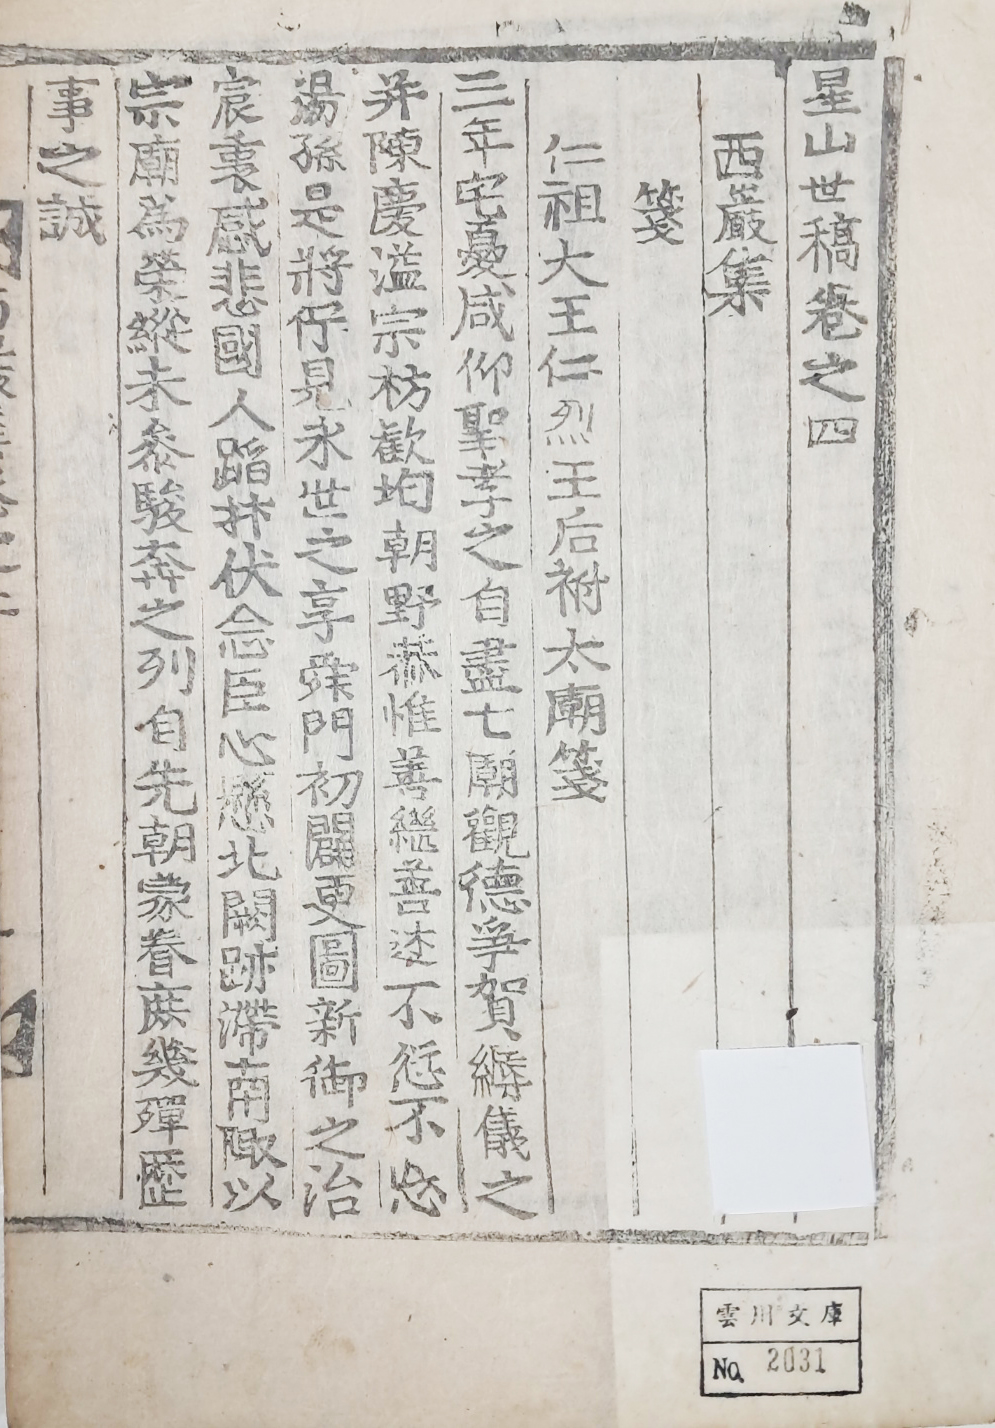 星山世稿卷之四
西巖集
箋
仁祖大王仁烈王后祔太廟箋
三年宅憂咸仰聖孝之自盡七廟觀德爭賀縟儀之
并陳慶溢宗枋歡均朝野恭惟善繼善述不愆不忘
湯孫是將佇見永世之享舜門初闢更圖新御之治
宸衷感悲國人蹈抃伏念臣心懸北闕跡滯南陬以
宗廟爲榮縱未參駿奔之列自先朝蒙眷庶幾殫歷
事之誠
雲川文庫
No. 2031